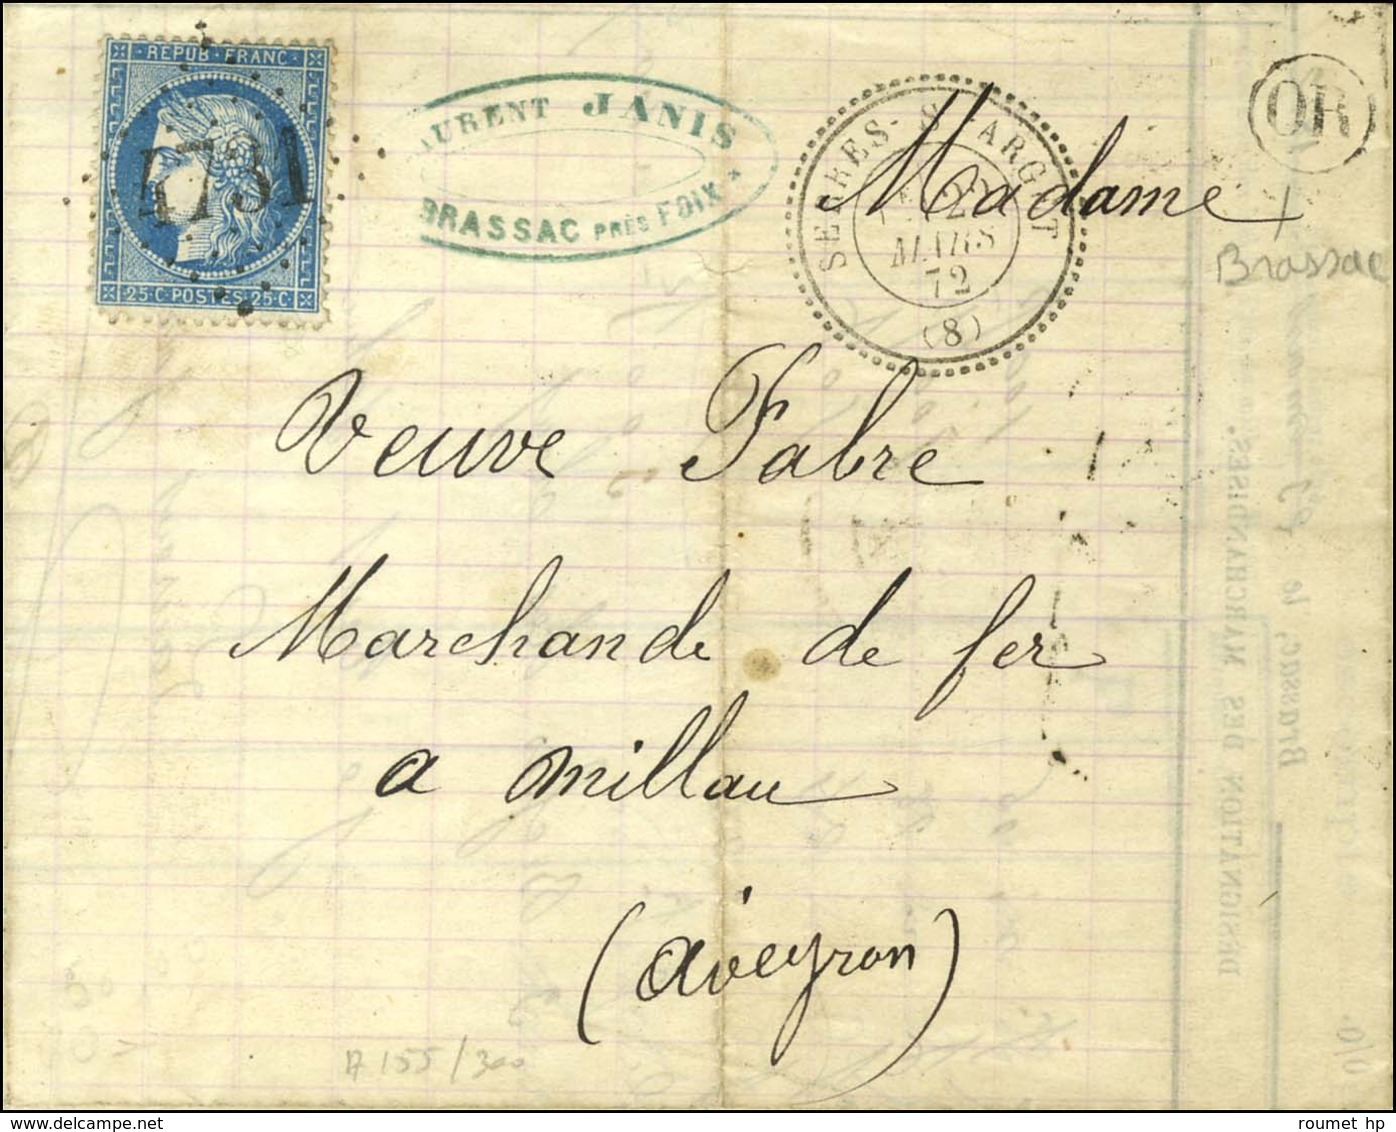 REPUB · FRANC
4731
25 · C · POSTES · 25 · C
AURENT JANIS
BRASSAC PRÈS FOIX
SERRES-S ARGET
MARS
72
(8)
OR
Brassac
Madame
Veuve Fabre
Marchande de fer
a Millau
(aveyron)
A 155/300
DÉSIGNATION DES MARCHANDISES.
Brassac, le
roumet hp